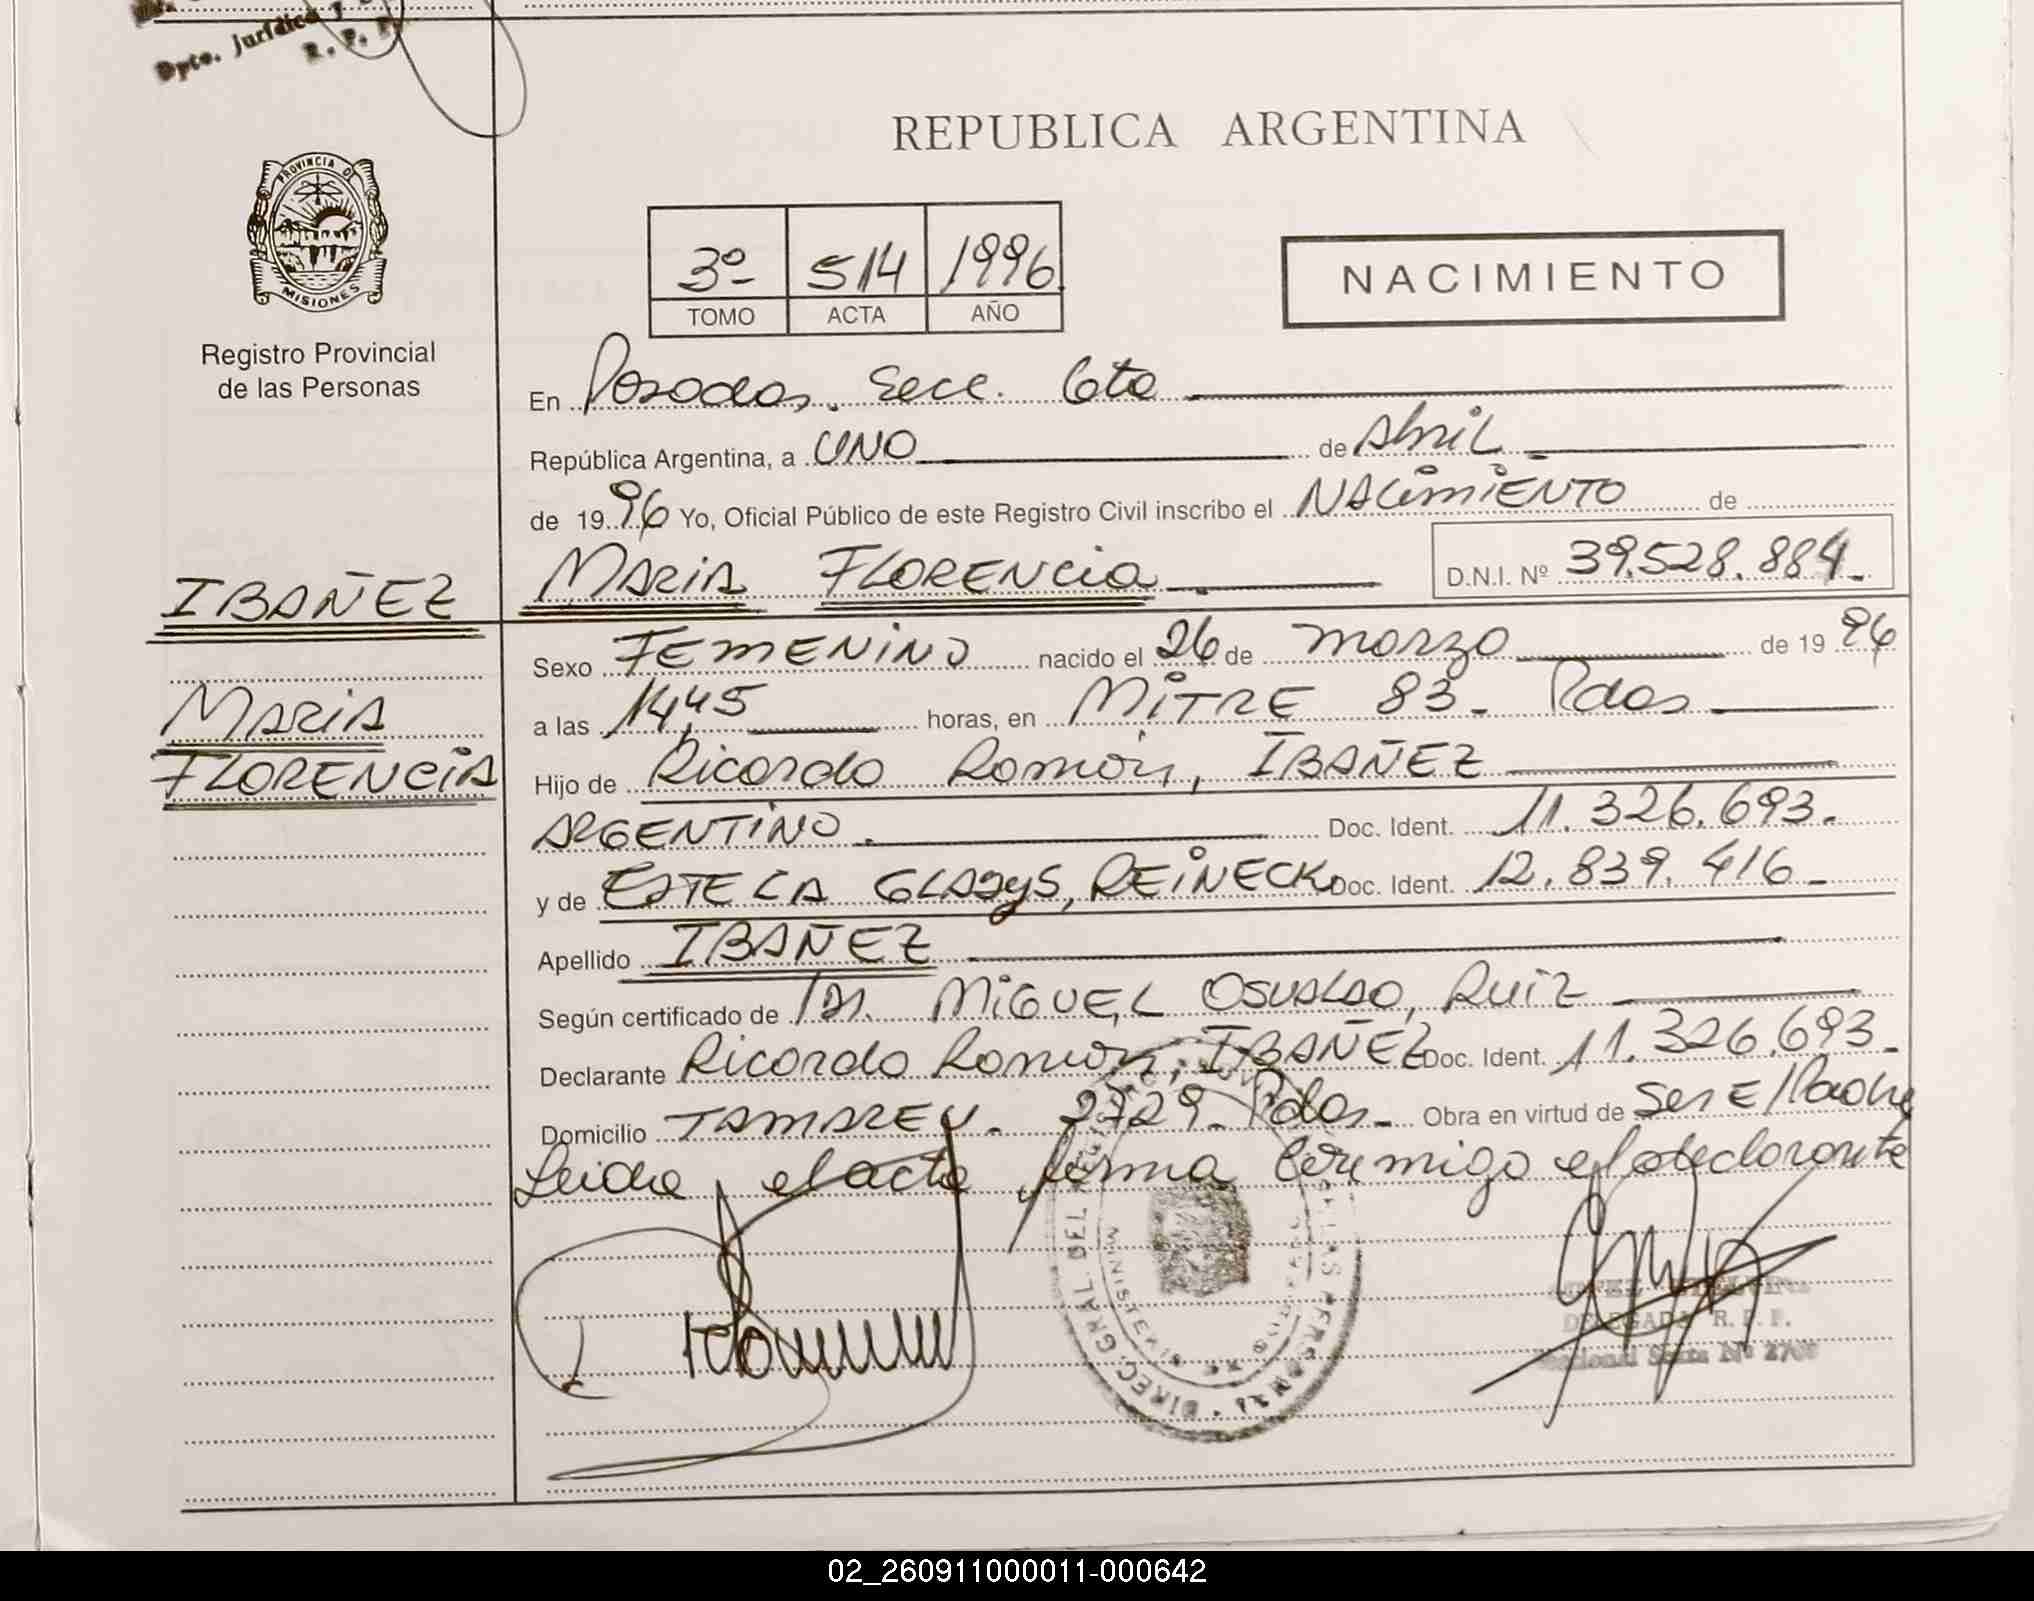 Dpto. Jurídico y
R. P. P.
REPUBLICA ARGENTINA
PROVINCIA D
MISIONES
Registro Provincial
de las Personas
3º 514 1996
TOMO ACTA AÑO
NACIMIENTO
En Posadas. Secc. 6ta
República Argentina, a UNO de Abril
de 1996 Yo, Oficial Público de este Registro Civil inscribo el NACIMIENTO de
IBAÑEZ MARIA FLORENCIA D.N.I. Nº 39.528.884
Sexo FEMENINO nacido el 26 de marzo de 1996
MARIA
a las 14,45 horas, en MITRE 83 - Pdas
FLORENCIA
Hijo de Ricardo Ramón, IBAÑEZ
ARGENTINO. Doc. Ident. 11.326.693.
y de ESTELA GLADYS, REINECK Doc. Ident. 12.839.416 -
Apellido IBAÑEZ
Según certificado de Dr. MIGUEL OSVALDO, RUIZ
Declarante Ricardo Ramón, IBAÑEZ Doc. Ident. 11.326.693.
Domicilio 2729 - Pdas - Obra en virtud de Ser El Padre
Leida el acta firma conmigo el declarante
DIREC. GRAL DEL
DELEGADA R. P. P.
02_260911000011-000642